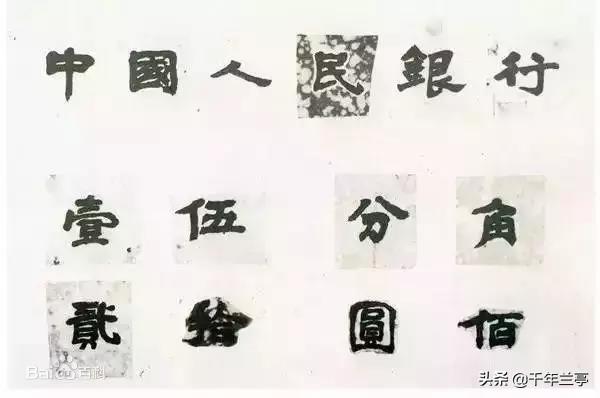 中國人民銀行
壹伍分角
貳拾圓佰
Bai百科
头条@千年兰亭